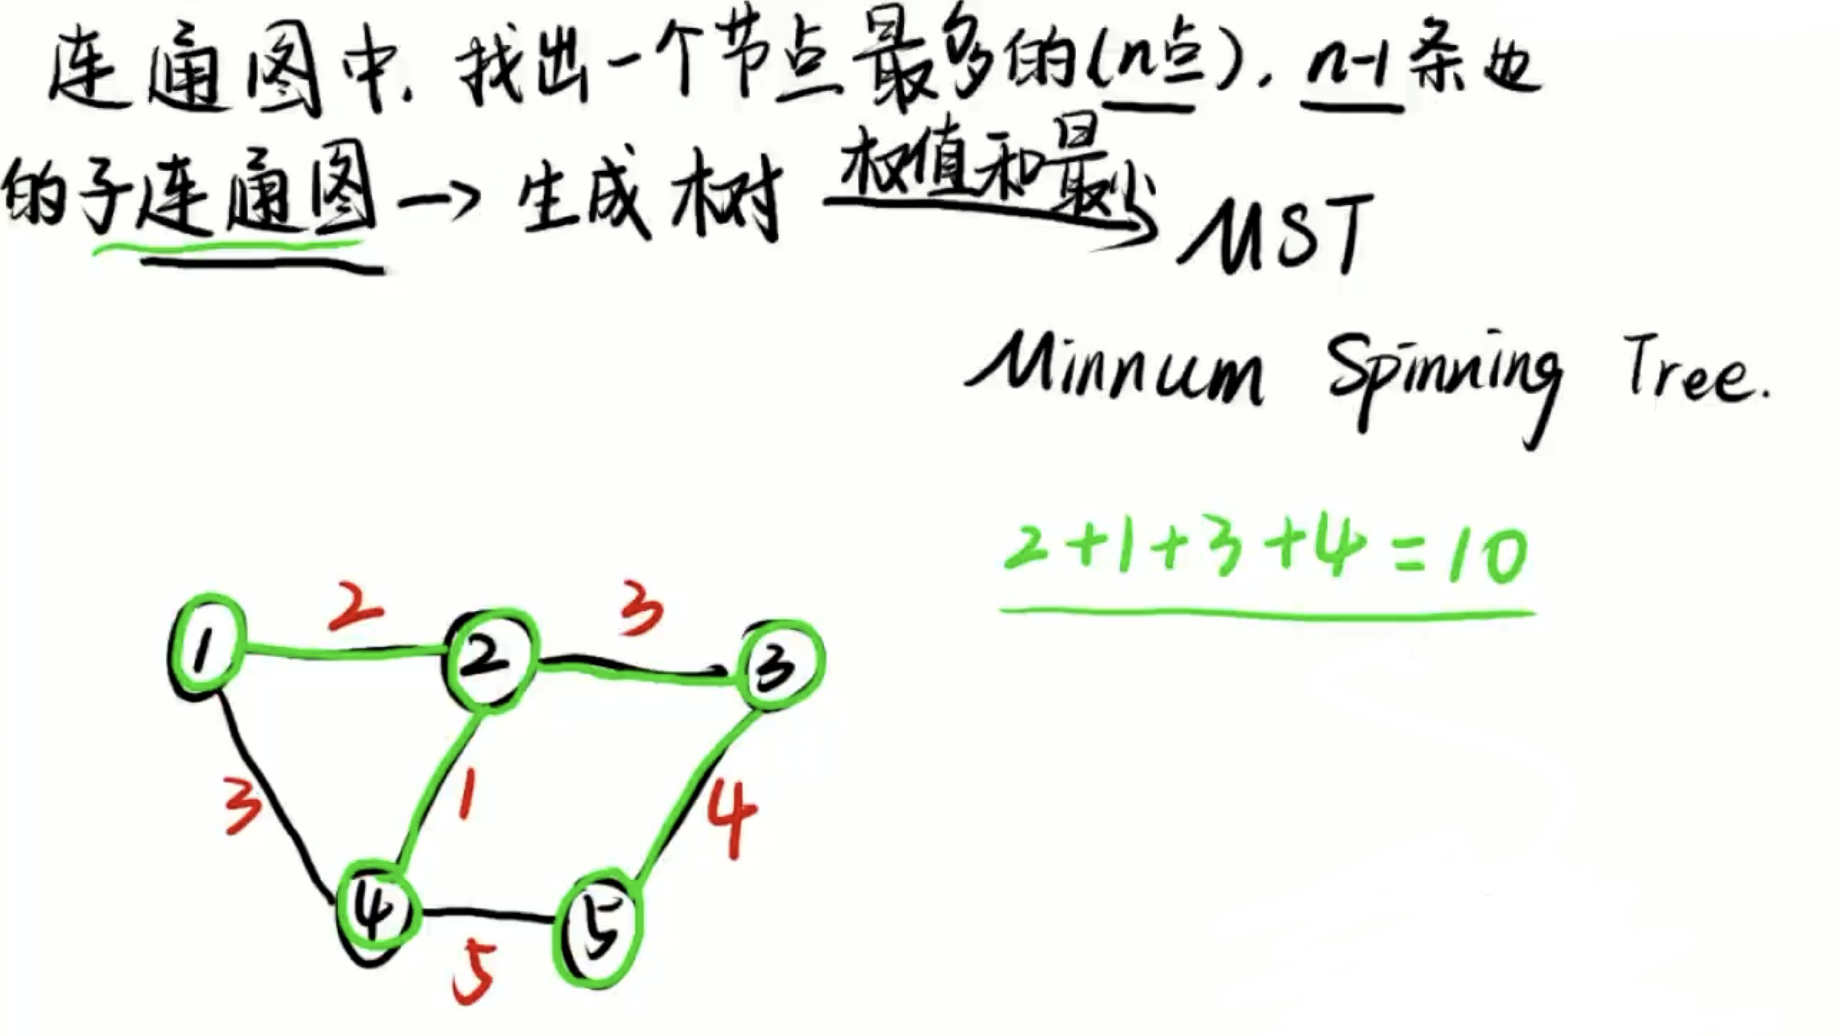 连通图中, 找出一个节点最多的(n点), n-1条边
的子连通图 → 生成树 权值和最小 MST
Minnum Spinning Tree.
2+1+3+4=10
2 3
1 2 3
3 1 4
4 5
5